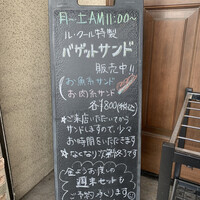 月〜土AM11:00〜
ル・クール特製
バゲットサンド
販売中!!
お魚系サンド
お肉系サンド
各¥800(税込)
☆ご来店いただいてから
サンドしますので、少々
お時間をいただきます
☆なくなり次第終了です
金よりお渡しの
週末セットも
ご予約承ります